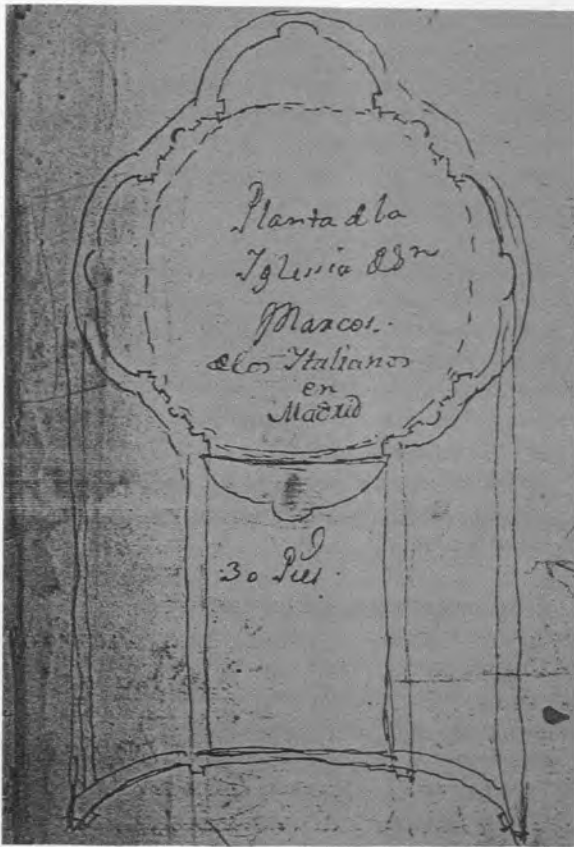 Planta de la
Iglesia de Sn
Marcos.
de los Italianos
en
Madrid
30 Pies.